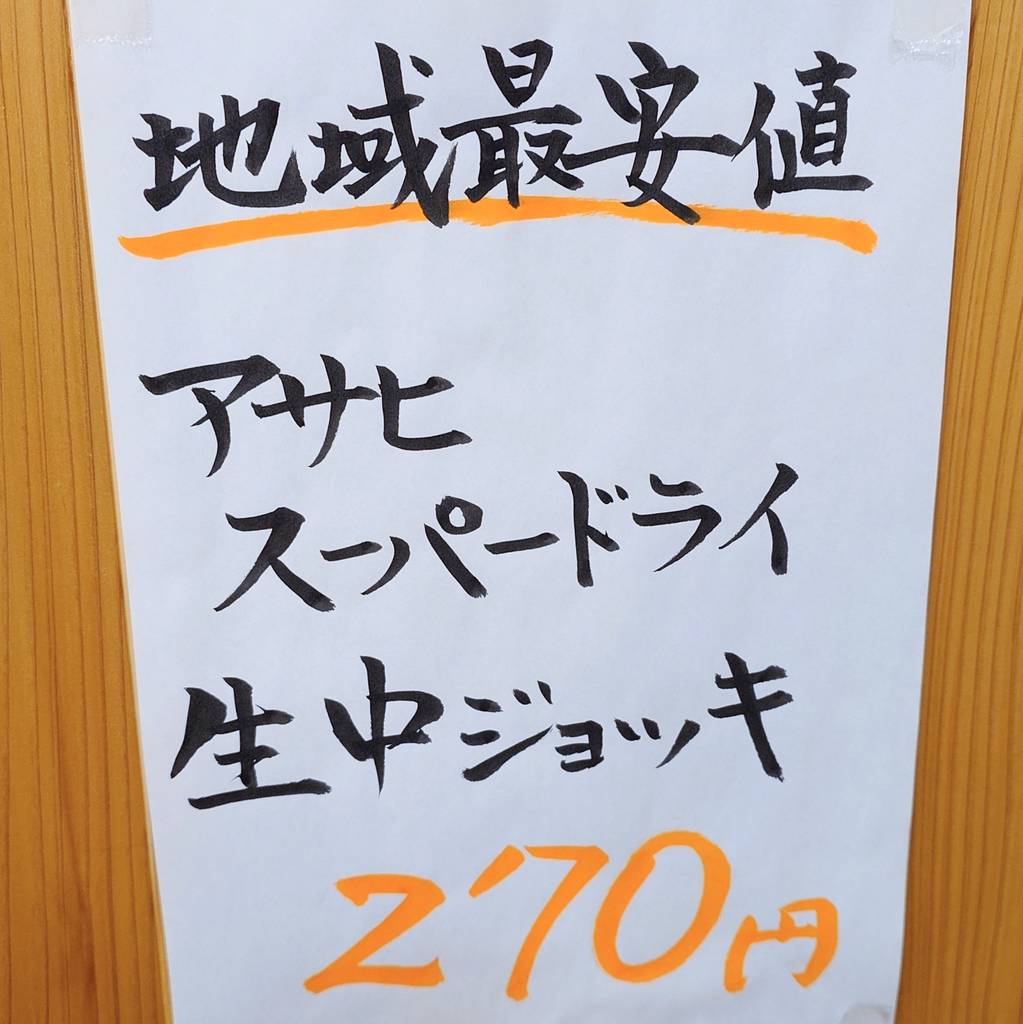 地域最安値
アサヒ
スーパードライ
生中ジョッキ
270円